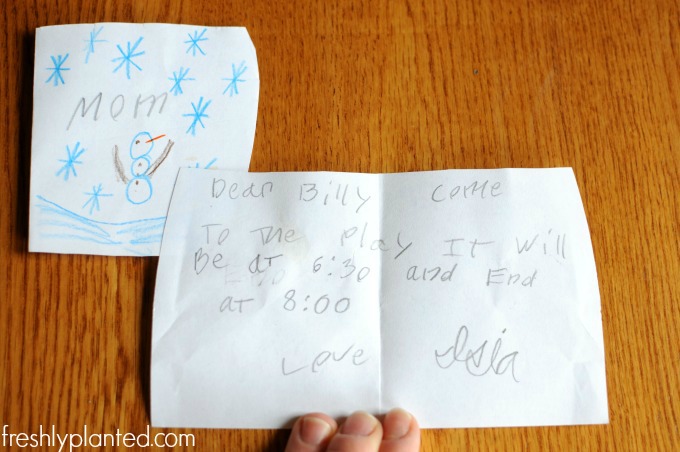 Mom
Dear Billy Come
To The Play It Will
Be at 6:30 and End
at 8:00
Love Isia
freshlyplanted.com